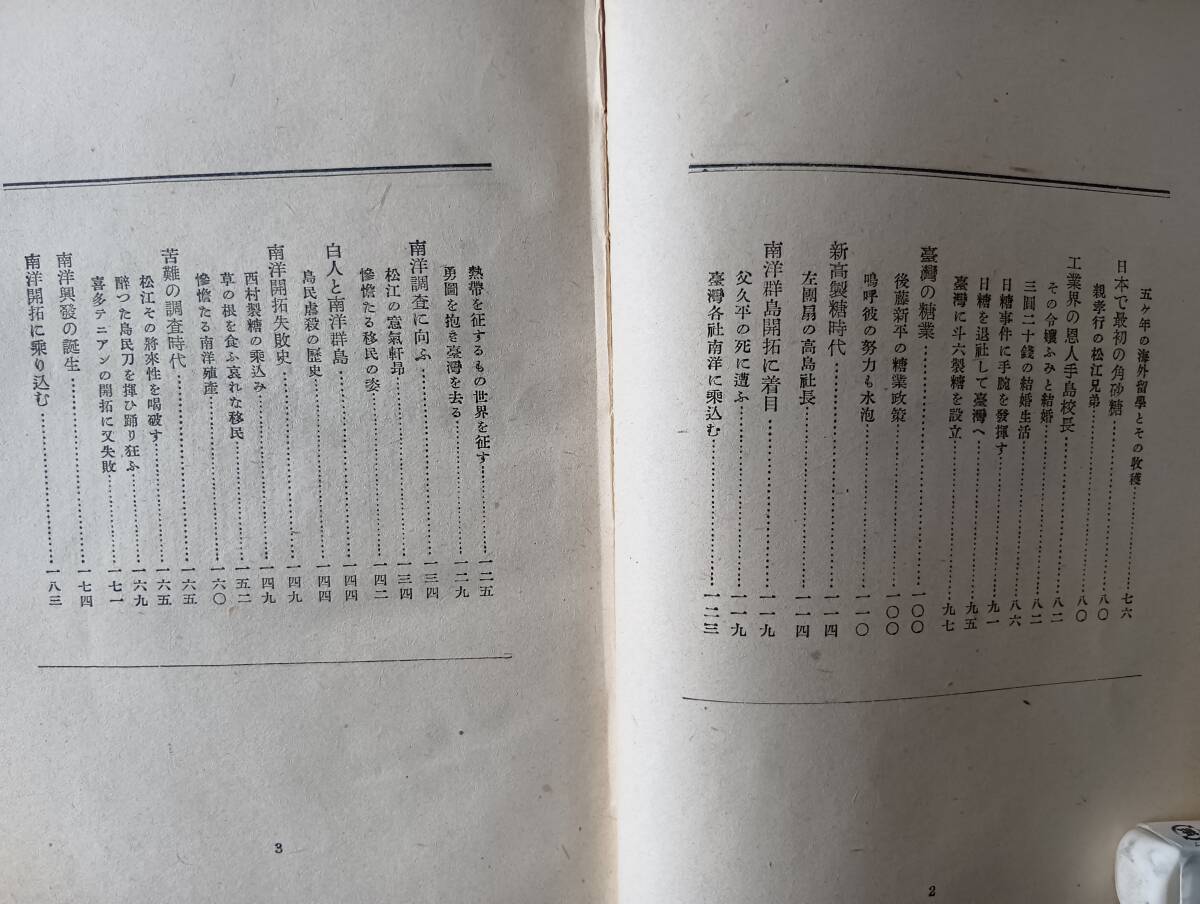 五ヶ年の海外留學とその收穫…………七六
日本で最初の角砂糖…………八〇
親孝行の松江兄弟…………八〇
工業界の恩人手島校長…………八二
その令孃ふみと結婚…………八二
三圓二十錢の結婚生活…………八六
日糖事件に手腕を發揮す…………九一
日糖を退社して臺灣へ…………九五
臺灣に斗六製糖を設立…………九七
臺灣の糖業…………一〇〇
後藤新平の糖業政策…………一〇〇
嗚呼彼の努力も水泡…………一一〇
新高製糖時代…………一一四
左團扇の高島社長…………一一四
南洋群島開拓に着目…………一一九
父久平の死に遭ふ…………一一九
臺灣各社南洋に乘込む…………一二三
2
熱帶を征するもの世界を征す…………一二五
勇圖を抱き臺灣を去る…………一二九
南洋調査に向ふ…………一三四
松江の意氣軒昻…………一三四
慘憺たる移民の姿…………一四二
白人と南洋群島…………一四四
島民虐殺の歴史…………一四四
南洋開拓失敗史…………一四九
西村製糖の乘込み…………一四九
草の根を食ふ哀れな移民…………一五二
慘憺たる南洋殖産…………一六〇
苦難の調査時代…………一六五
松江その將來性を喝破す…………一六五
醉つた島民刀を揮ひ踊り狂ふ…………一六九
喜多テニアンの開拓に又失敗…………一七一
南洋興發の誕生…………一七四
南洋開拓に乘り込む…………一八三
3